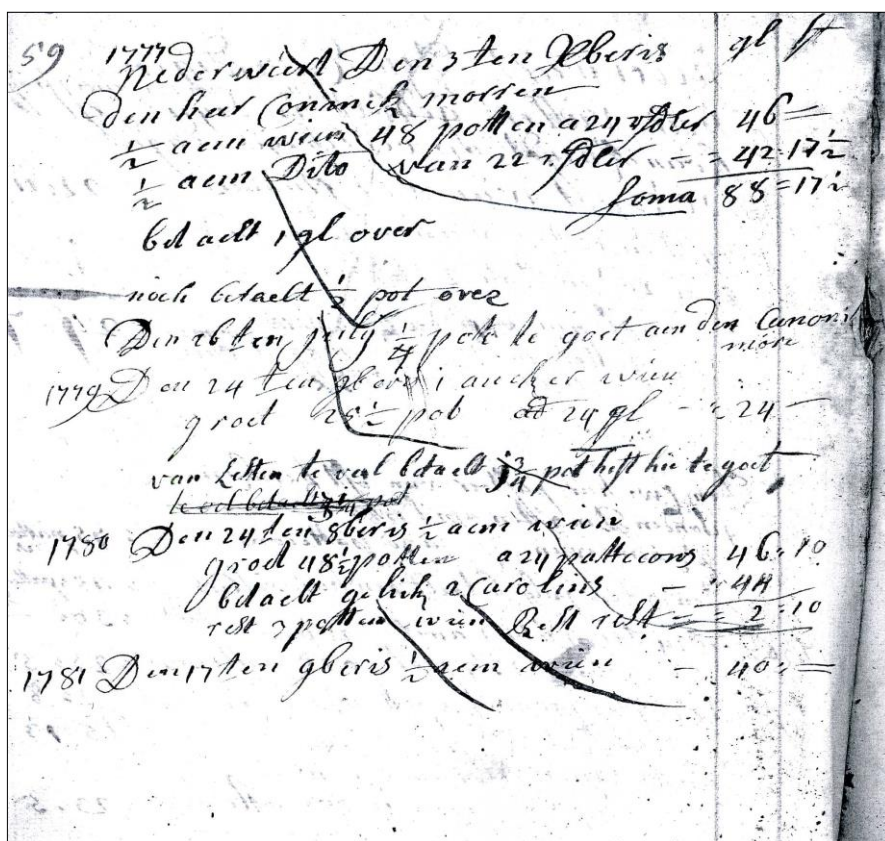 59 1777 gl st
Nederweert Den 3ten Xberis
den heer Coninck morren
½ aem wien 48 potten a 24 46 =
½ aem Dito van 22 - = 42 - 17 ½
Soma 88 = 17 ½
betaelt 1 gl over
noch betaelt ½ pot over
Den 26ten july ¼ pot te goet aen den Canoni
more
1779 Den 24ten 9beris 1 ancker wien
groet 25 ½ pot ad 24 gl - = 24 -
van Letten te veel betaelt ¾ pot heft hie te goet
te veel betaelt pot
1780 Den 24ten 8beris ½ aem wien
groet 48 ½ potten a 24 pattecons 46 = 10
betaelt gelick 2 Carolins - = 44
rest 3 potten wien Rest rest - = 2 = 10
1781 Den 17ten 9beris ½ aem wien - 40 = =